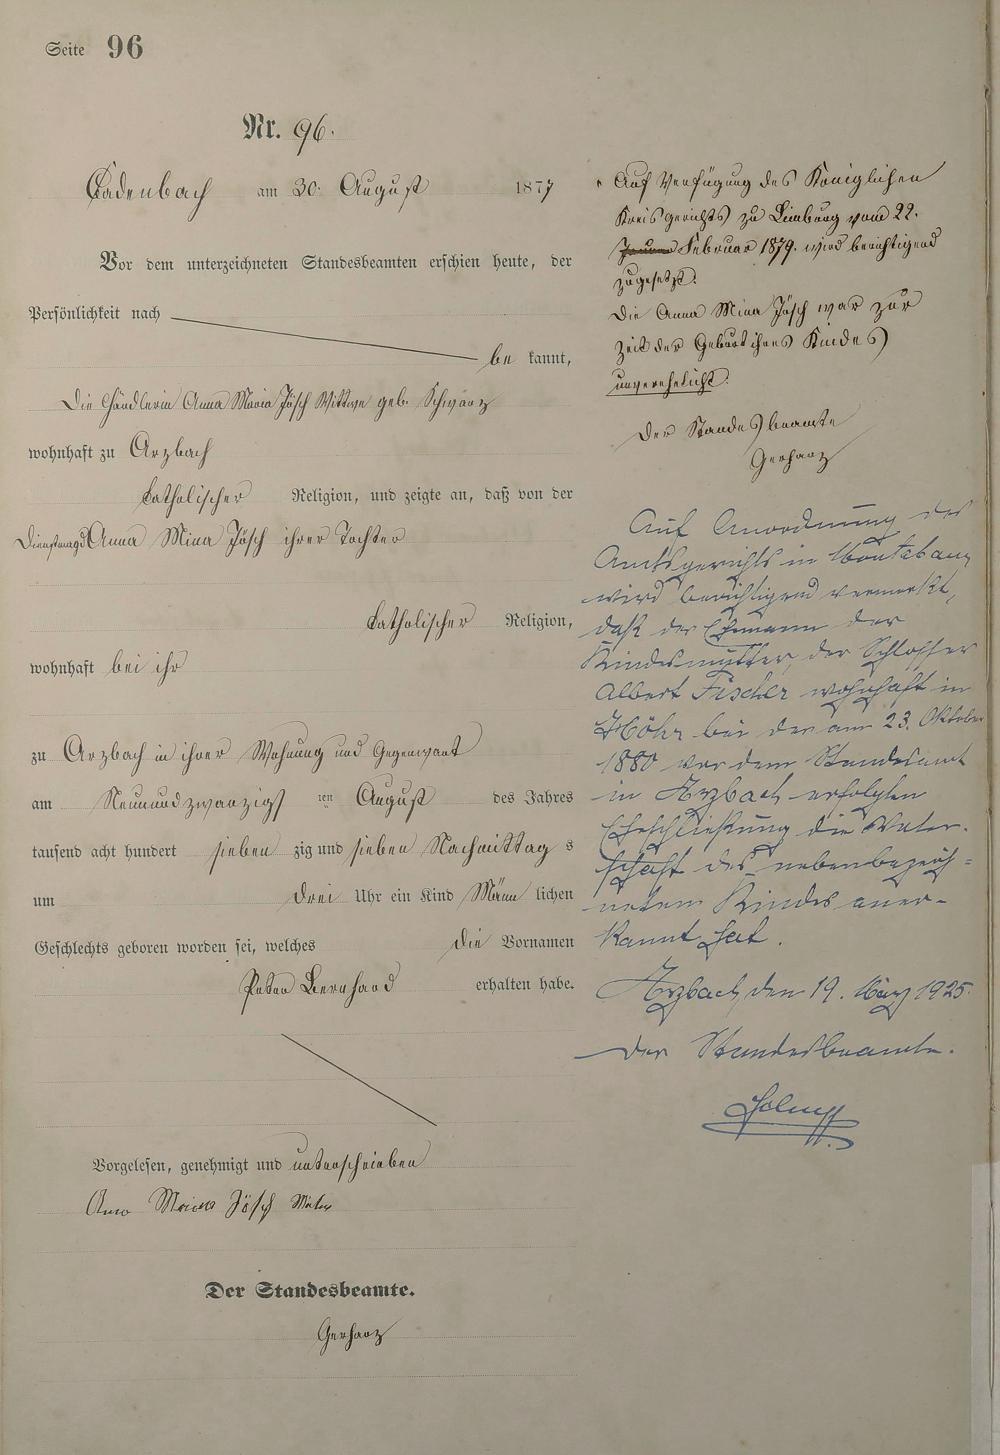 Seite 96
Nr. 96.
Cadenbach am 30. August 1877
Vor dem unterzeichneten Standesbeamten erschien heute, der
Persönlichkeit nach
be kannt,
Die Händlerin Anna Maria Jösch Wittwe geb. Schwarz
wohnhaft zu Arzbach
katholischer Religion, und zeigte an, daß von der
Dienstmagd Anna Mina Jösch ihrer Tochter
katholischer Religion,
wohnhaft bei ihr
zu Arzbach in ihrer Wohnung und Gegenwart
am Neunundzwanzigs ten August des Jahres
tausend acht hundert sieben zig und sieben Nachmittag s
um drei Uhr ein Kind Männ lichen
Geschlechts geboren worden sei, welches die Vornamen
Peter Bernhard erhalten habe.
Vorgelesen, genehmigt und unterschrieben
Anna Maria Jösch Witwe
Der Standesbeamte.
Gerharz
Auf Verfügung des Königlichen
Kreisgerichts zu Limburg vom 22.
Januar Februar 1879. wird berichtigend
zugesetzt.
Die Anna Mina Jösch war zur
Zeit der Geburt ihres Kindes
unverehelicht.
Der Standesbeamte
Gerharz
Auf Anordnung des
Amtsgerichts in Montabaur
wird berichtigend vermerkt,
daß der Ehemann der
Kindesmutter, der Schlosser
Albert Fischer wohnhaft in
Höhr bei der am 23. Oktober
1880 vor dem Standesamt
in Arzbach erfolgten
Eheschließung die Vater-
schaft des nebenbezeich=
neten Kindes aner-
kannt hat.
Arzbach, den 19. März 1925.
Der Standesbeamte.